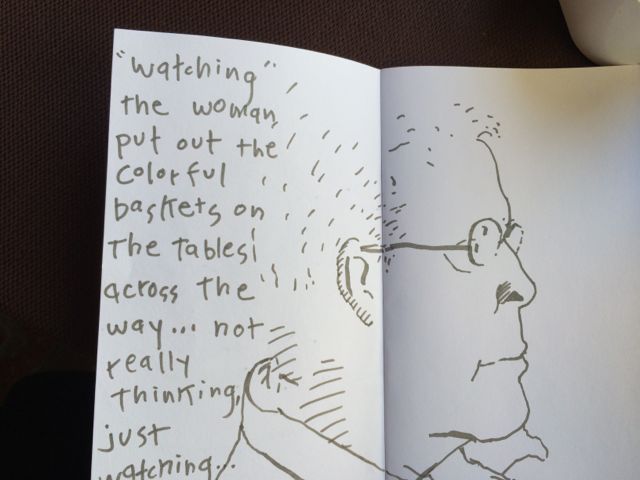 "watching"
the woman
put out the
colorful
baskets on
the tables
across the
way... not
really
thinking,
just
watching...